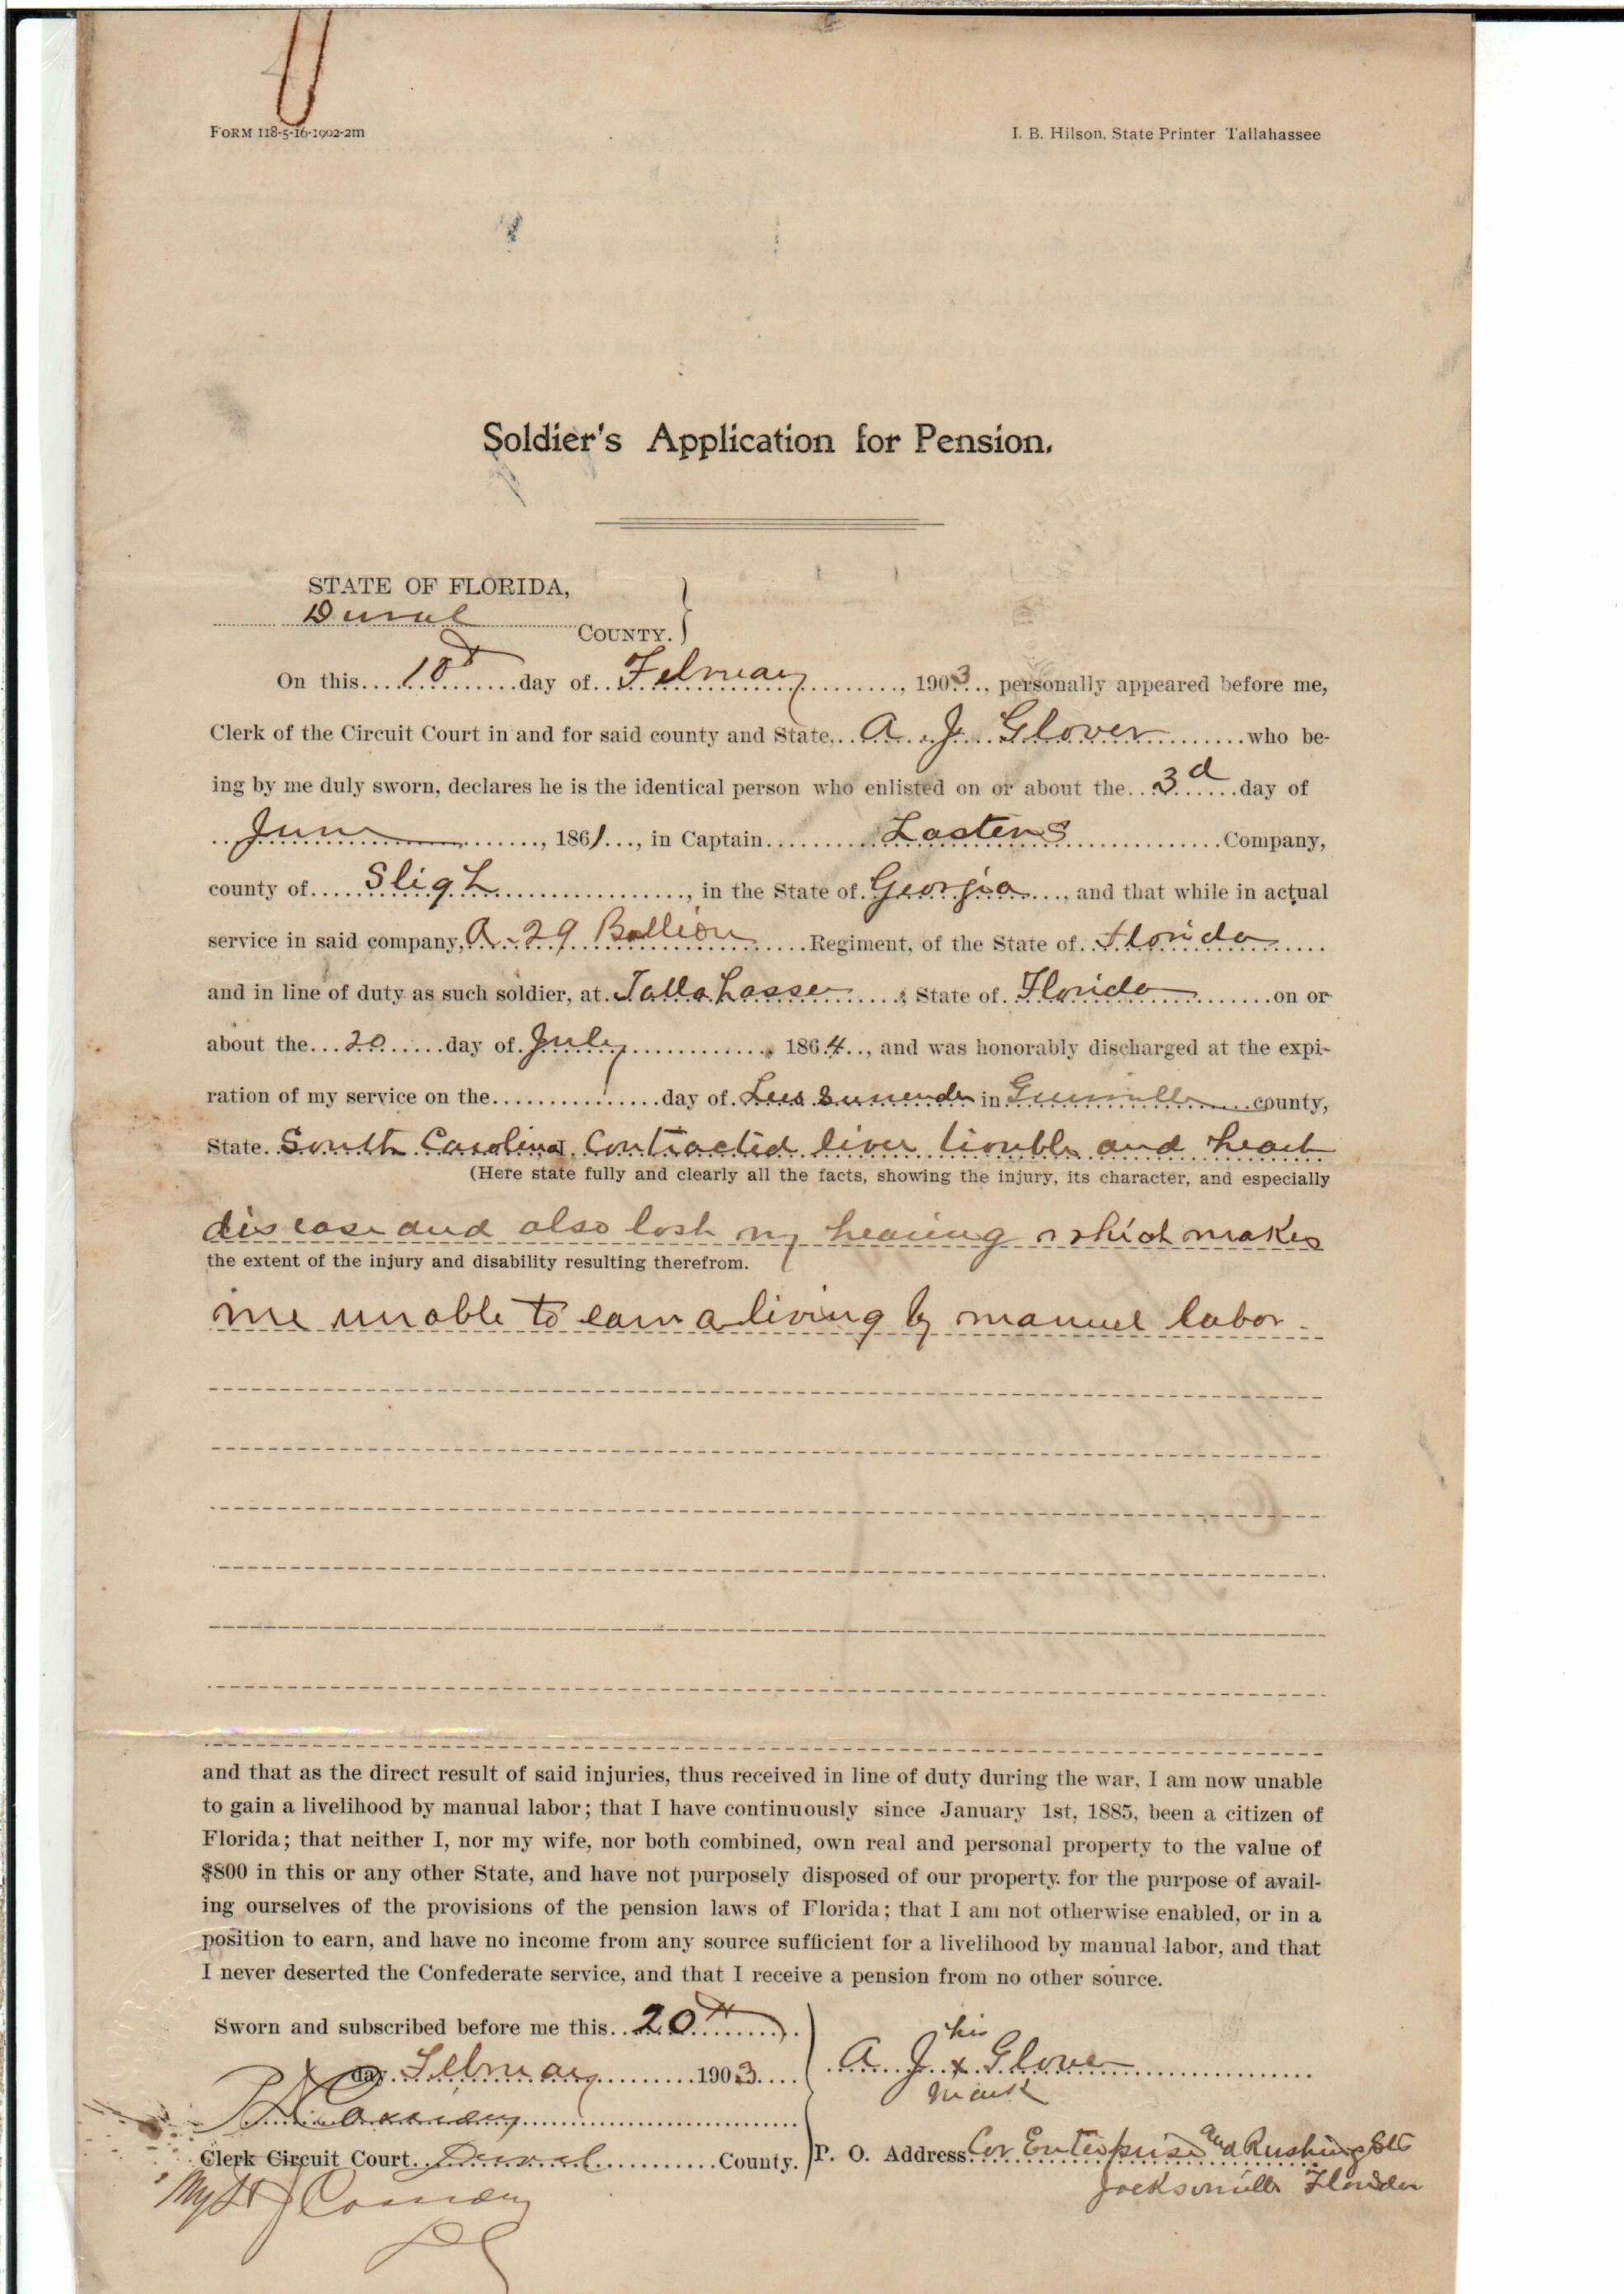 FORM 118-5-16-1902-2m
I. B. Hilson, State Printer Tallahassee
Soldier's Application for Pension.
STATE OF FLORIDA,
Duval COUNTY.
On this 18th day of February, 1903, personally appeared before me,
Clerk of the Circuit Court in and for said county and State, A. J. Glover who be-
ing by me duly sworn, declares he is the identical person who enlisted on or about the 3d day of
June, 1861, in Captain Lastens Company,
county of Sligh, in the State of Georgia, and that while in actual
service in said company, A 29 Battlion Regiment, of the State of Florida
and in line of duty as such soldier, at Tallahassee, State of Florida on or
about the 20 day of July, 1864, and was honorably discharged at the expi-
ration of my service on the day of Lees Surrender in Greenville county,
State South Carolina Contracted liver trouble and heart
(Here state fully and clearly all the facts, showing the injury, its character, and especially
disease and also lost my hearing which makes
the extent of the injury and disability resulting therefrom.
me unable to earn a living by manuel labor.
and that as the direct result of said injuries, thus received in line of duty during the war, I am now unable
to gain a livelihood by manual labor; that I have continuously since January 1st, 1885, been a citizen of
Florida; that neither I, nor my wife, nor both combined, own real and personal property to the value of
$800 in this or any other State, and have not purposely disposed of our property. for the purpose of avail-
ing ourselves of the provisions of the pension laws of Florida; that I am not otherwise enabled, or in a
position to earn, and have no income from any source sufficient for a livelihood by manual labor, and that
I never deserted the Confederate service, and that I receive a pension from no other source.
Sworn and subscribed before me this 20th
day February 1903
his
A. J. x Glover
mark
Clerk Circuit Court Duval County.
P. O. Address Cor Enterprise and Rushing Sts
Jacksonville Florida